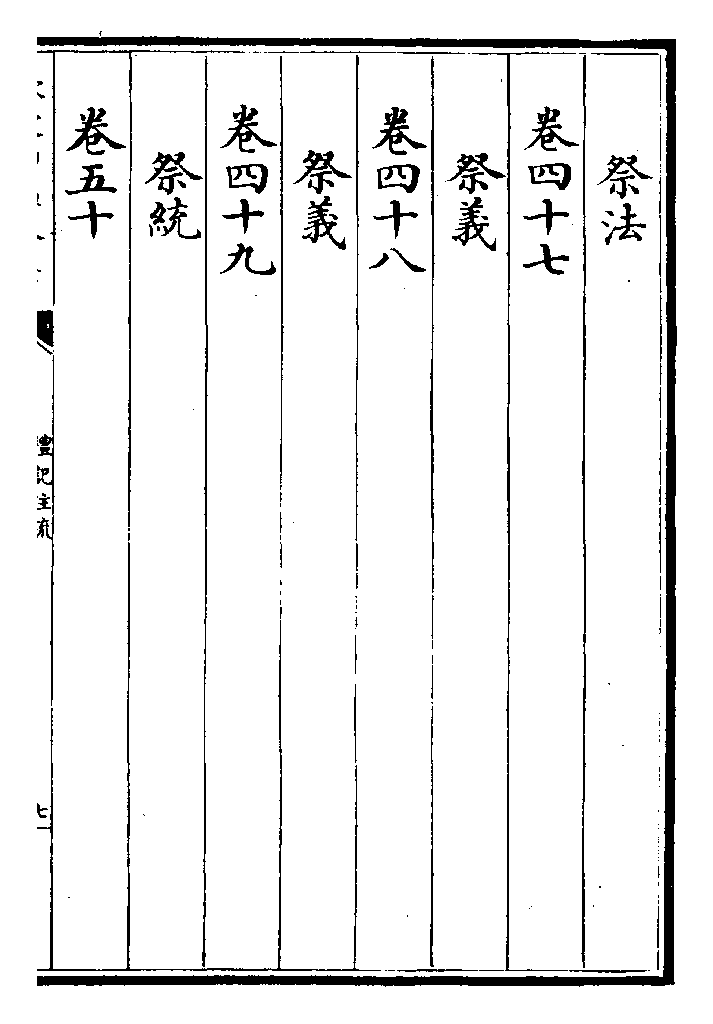 祭法
卷四十七
祭義
卷四十八
祭義
卷四十九
祭統
卷五十
禮記注疏
七